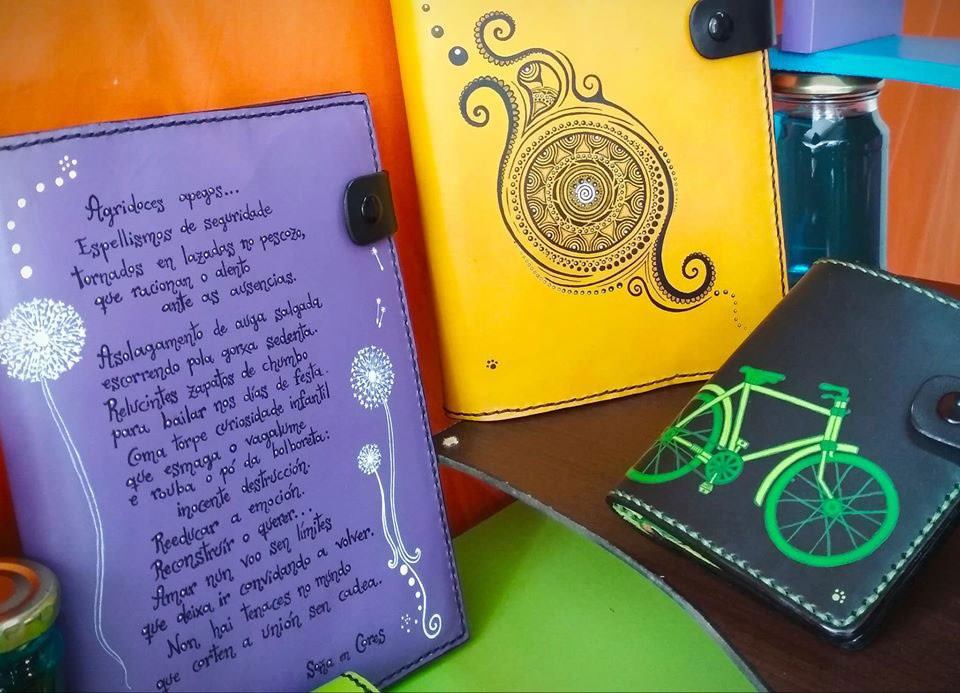 Agridoces apegos...
Espellismos de seguridade
tornados en lazadas no pescozo,
que racionan o alento
ante as ausencias.
Asolagamento de auga salgada
escorrendo pola gorxa sedenta.
Relucintes zapatos de chumbo
para bailar nos días de festa.
Coma torpe curiosidade infantil
que esmaga o vagalume
e rouba o pó da bolboreta:
inocente destrucción.
Reeducar a emoción.
Reconstruír o querer...
Amar nun voo sen límites
que deixa ir convidando a volver.
Non hai tenaces no mundo
que corten a unión sen cadea.
Soña en Cores